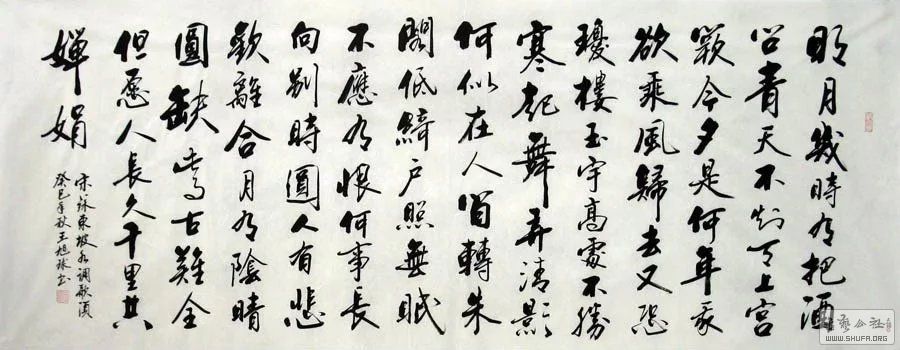 明月幾時有把酒
問青天不知天上宮
闕今夕是何年我
欲乘風歸去又恐
瓊樓玉宇高處不勝
寒起舞弄清影
何似在人間轉朱
閣低綺户照無眠
不應有恨何事長
向别時圓人有悲
歡離合月有陰晴
圓缺此事古難全
但愿人長久千里共
嬋娟
宋蘇東坡水调歌頭
癸巳年秋王旭球书
藝公社
WWW.SHUFA.ORG